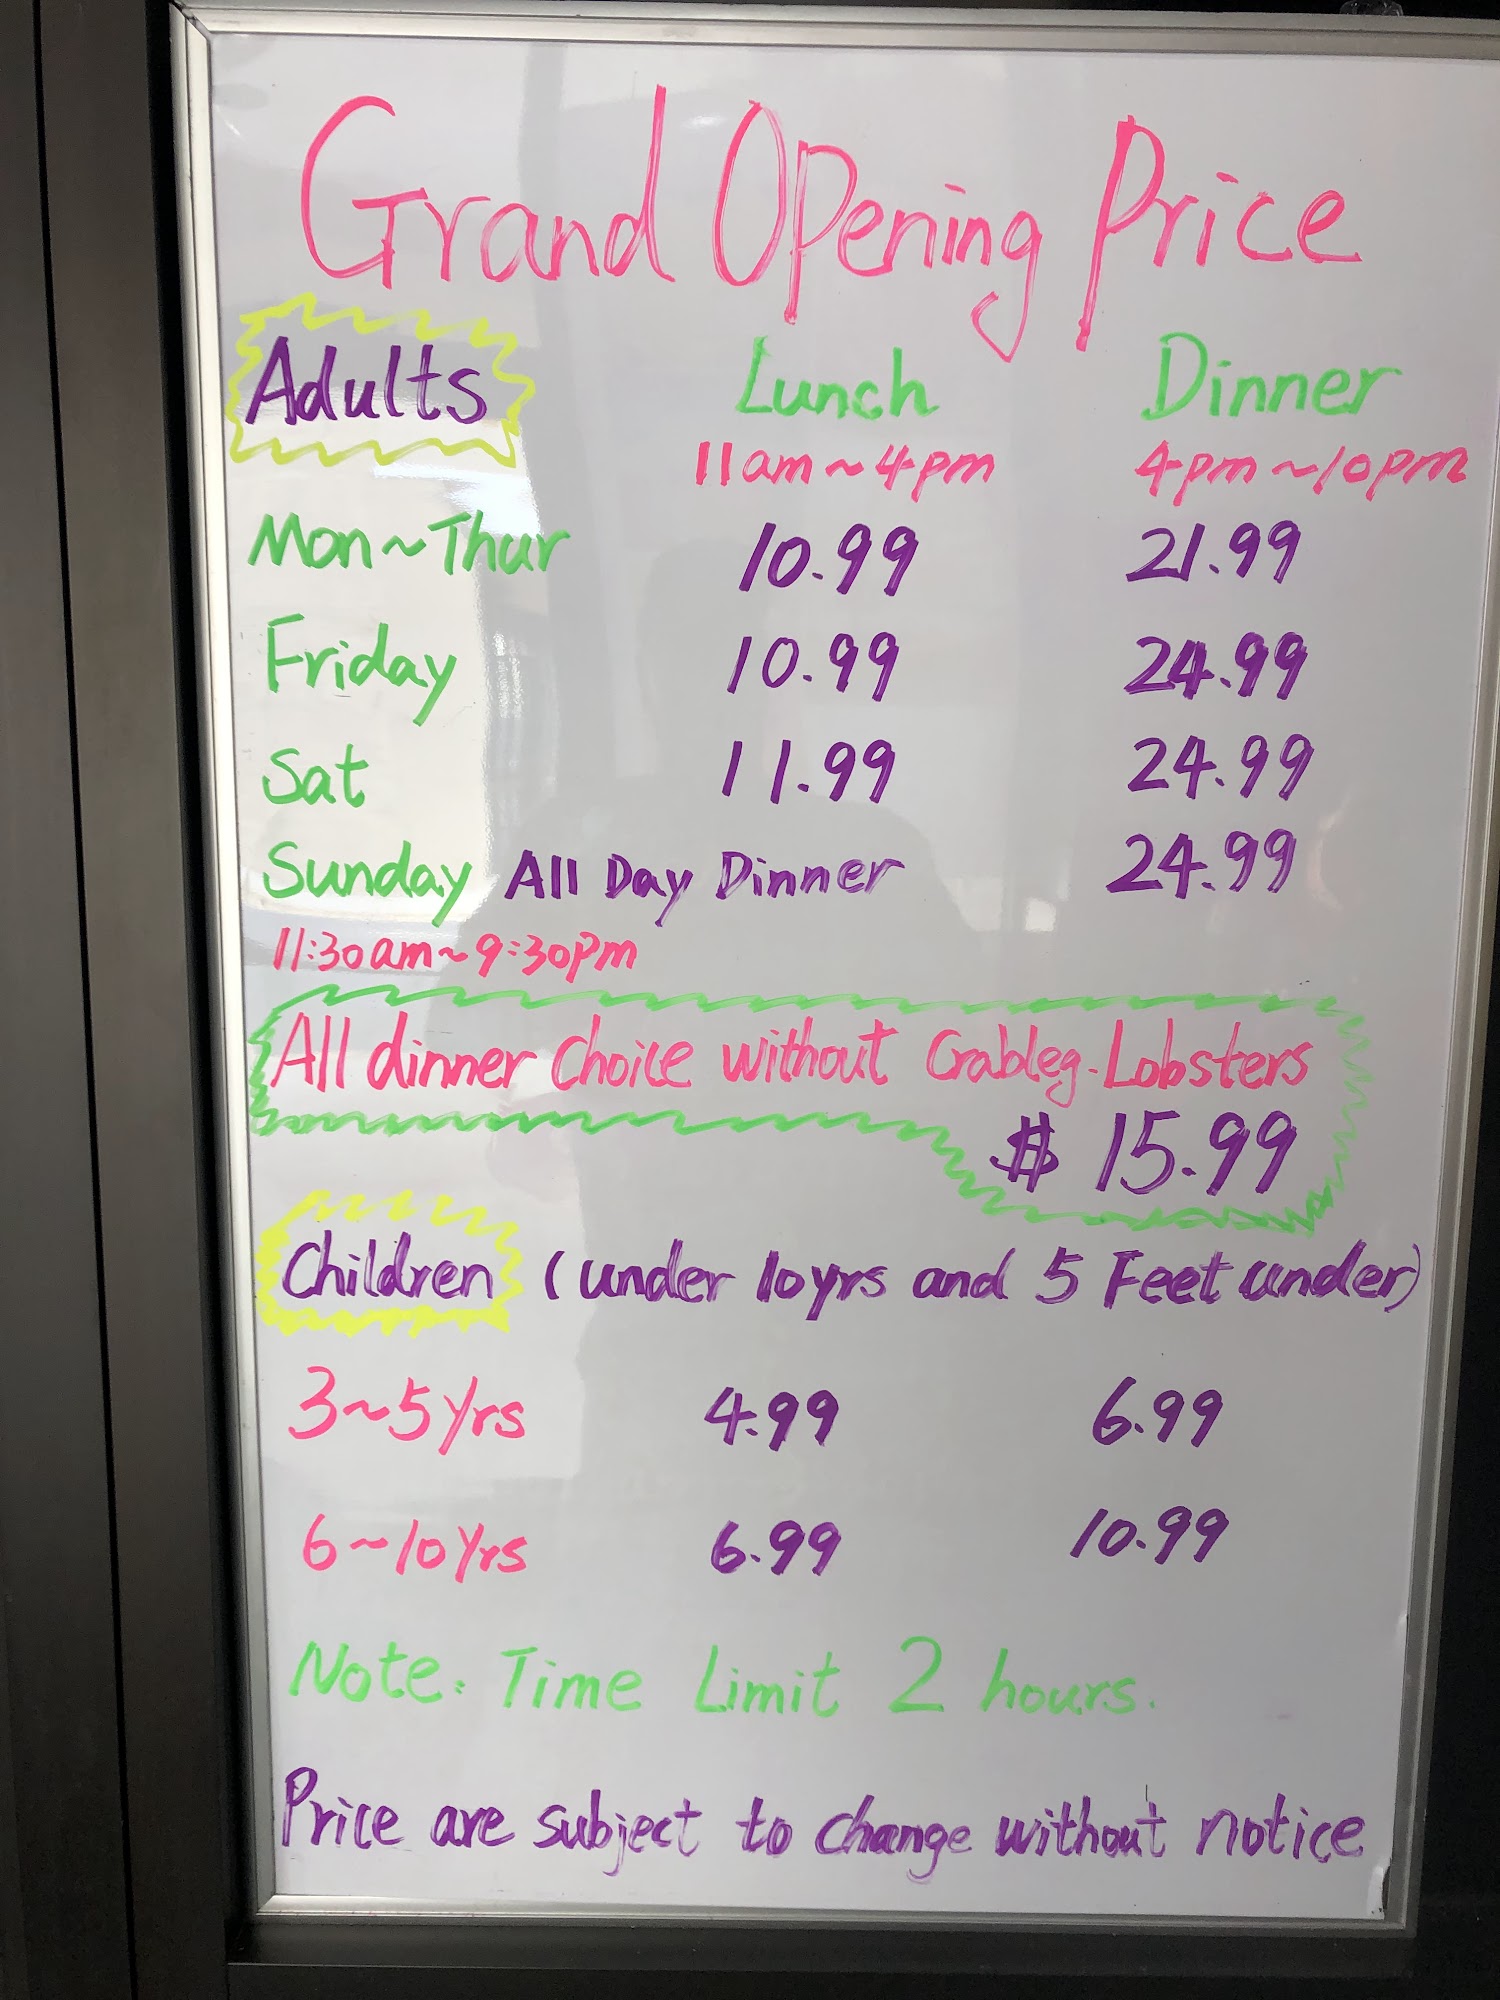 Grand Opening Price
Adults Lunch Dinner
11am~4pm 4pm~10pm
Mon~Thur 10.99 21.99
Friday 10.99 24.99
Sat 11.99 24.99
Sunday All Day Dinner 24.99
11:30am~9:30pm
All dinner choice without Crableg. Lobsters
$ 15.99
Children (under 10yrs and 5 Feet under)
3~5yrs 4.99 6.99
6~10yrs 6.99 10.99
Note: Time Limit 2 hours.
Price are subject to change without notice